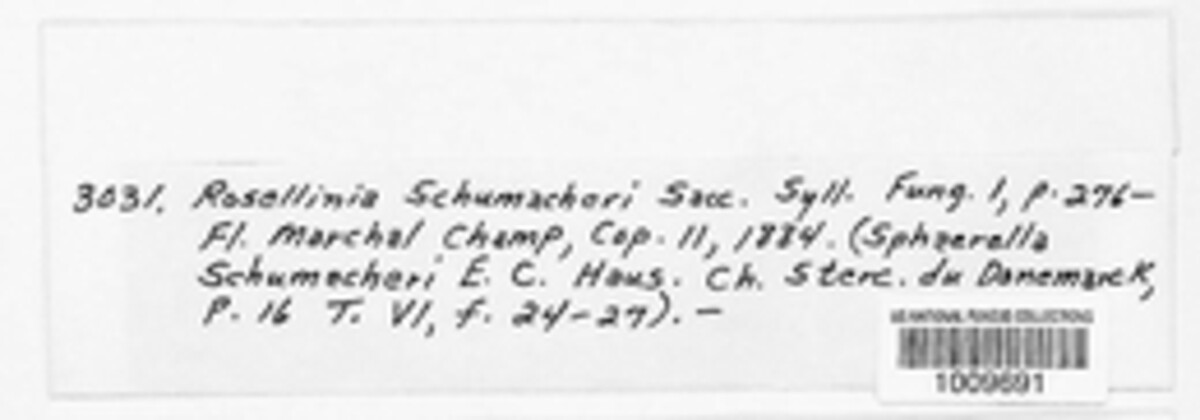 3031. Rosellinia Schumacheri Sacc. Syll. Fung. 1, p. 276—
Fl. Marchal Champ, Cop. 11, 1884. (Sphaerella
Schumacheri E. C. Haus. Ch. Sterc. du Danemarck,
P. 16 T. VI, f. 24-27). —
US NATIONAL FUNGUS COLLECTIONS
1009691